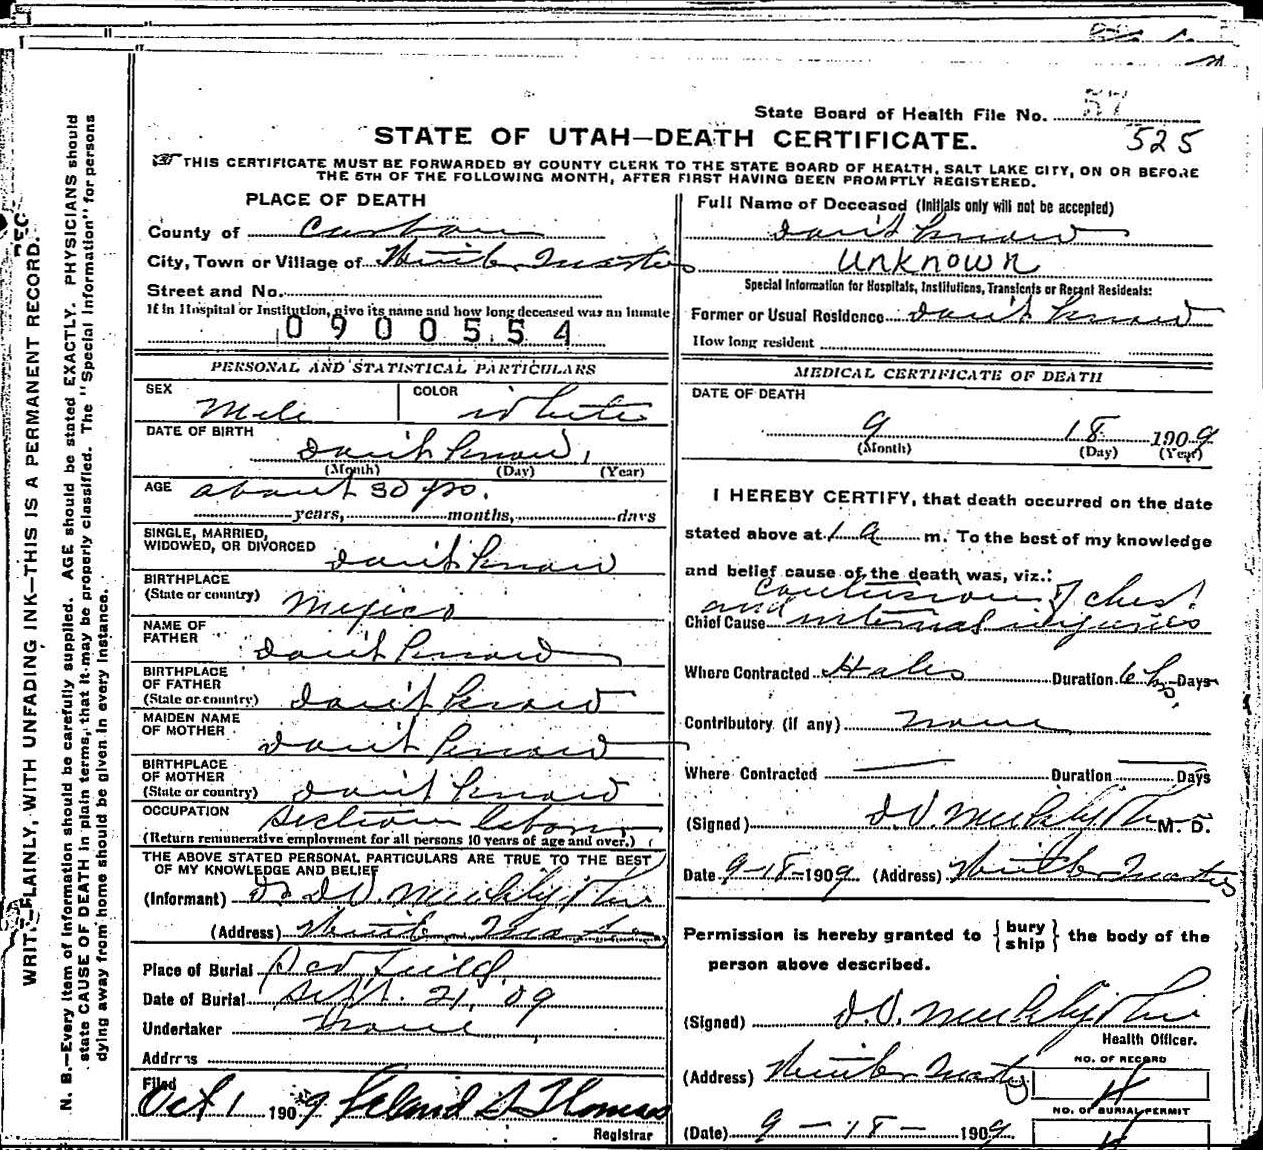 State Board of Health File No. 57
525
STATE OF UTAH—DEATH CERTIFICATE.
THIS CERTIFICATE MUST BE FORWARDED BY COUNTY CLERK TO THE STATE BOARD OF HEALTH, SALT LAKE CITY, ON OR BEFORE
THE 5TH OF THE FOLLOWING MONTH, AFTER FIRST HAVING BEEN PROMPTLY REGISTERED.
WRITE PLAINLY, WITH UNFADING INK—THIS IS A PERMANENT RECORD.
N. B.—Every item of Information should be carefully supplied. AGE should be stated EXACTLY. PHYSICIANS should
state CAUSE OF DEATH in plain terms, that it may be properly classified. The "Special Information" for persons
dying away from home should be given in every instance.
PLACE OF DEATH
County of Carbon
City, Town or Village of Winter Quarters
Street and No.
If in Hospital or Institution, give its name and how long deceased was an inmate
0900554
PERSONAL AND STATISTICAL PARTICULARS
SEX Male
COLOR White
DATE OF BIRTH Don't Know
(Month) (Day) (Year)
AGE about 30 yrs.
years, months, days
SINGLE, MARRIED,
WIDOWED, OR DIVORCED Don't Know
BIRTHPLACE
(State or country) Mexico
NAME OF
FATHER Don't Know
BIRTHPLACE
OF FATHER
(State or country) Don't Know
MAIDEN NAME
OF MOTHER Don't Know
BIRTHPLACE
OF MOTHER
(State or country) Don't Know
OCCUPATION Section labor
(Return remunerative employment for all persons 10 years of age and over.)
THE ABOVE STATED PERSONAL PARTICULARS ARE TRUE TO THE BEST
OF MY KNOWLEDGE AND BELIEF
(Informant) Dr D.V.
(Address) Winter Quarters
Place of Burial Scofield
Date of Burial Sept. 21, 09
Undertaker None
Address
Filed
Oct 1 1909 Leland S Thomas
Registrar
Full Name of Deceased (Initials only will not be accepted)
Don't Know
Unknown
Special Information for Hospitals, Institutions, Transients or Recent Residents:
Former or Usual Residence Don't Know
How long resident
MEDICAL CERTIFICATE OF DEATH
DATE OF DEATH
9 18 1909
(Month) (Day) (Year)
I HEREBY CERTIFY, that death occurred on the date
stated above at 1 a m. To the best of my knowledge
and belief cause of the death was, viz.:
Contusion of chest
Chief Cause and internal injuries
Where Contracted Hales Duration 6 hrs. Days
Contributory (if any) None
Where Contracted Duration Days
(Signed) D.V. M. D.
Date 9-18-1909 (Address) Winter Quarters
Permission is hereby granted to { bury ship } the body of the
person above described.
(Signed) D.V.
Health Officer.
(Address) Winter Quarters
NO. OF RECORD
4
NO. OF BURIAL PERMIT
4
(Date) 9-18-1909